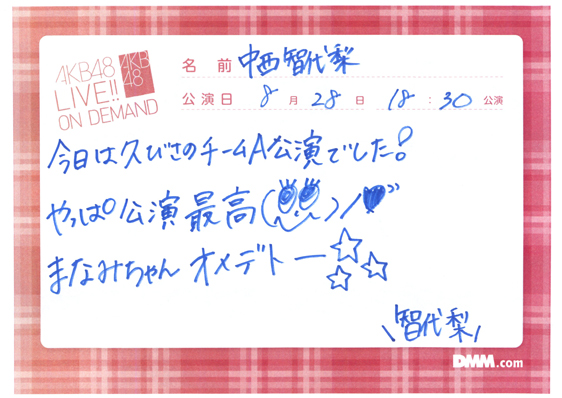 AKB48
LIVE!!
ON DEMAND
AKB
48
名 前 中西智代梨
公演日 8月28日 18:30公演
今日は久びさのチームA公演でした!
やっぱ公演最高
まなみちゃん オメデトー☆☆☆
\智代梨/
DMM.com